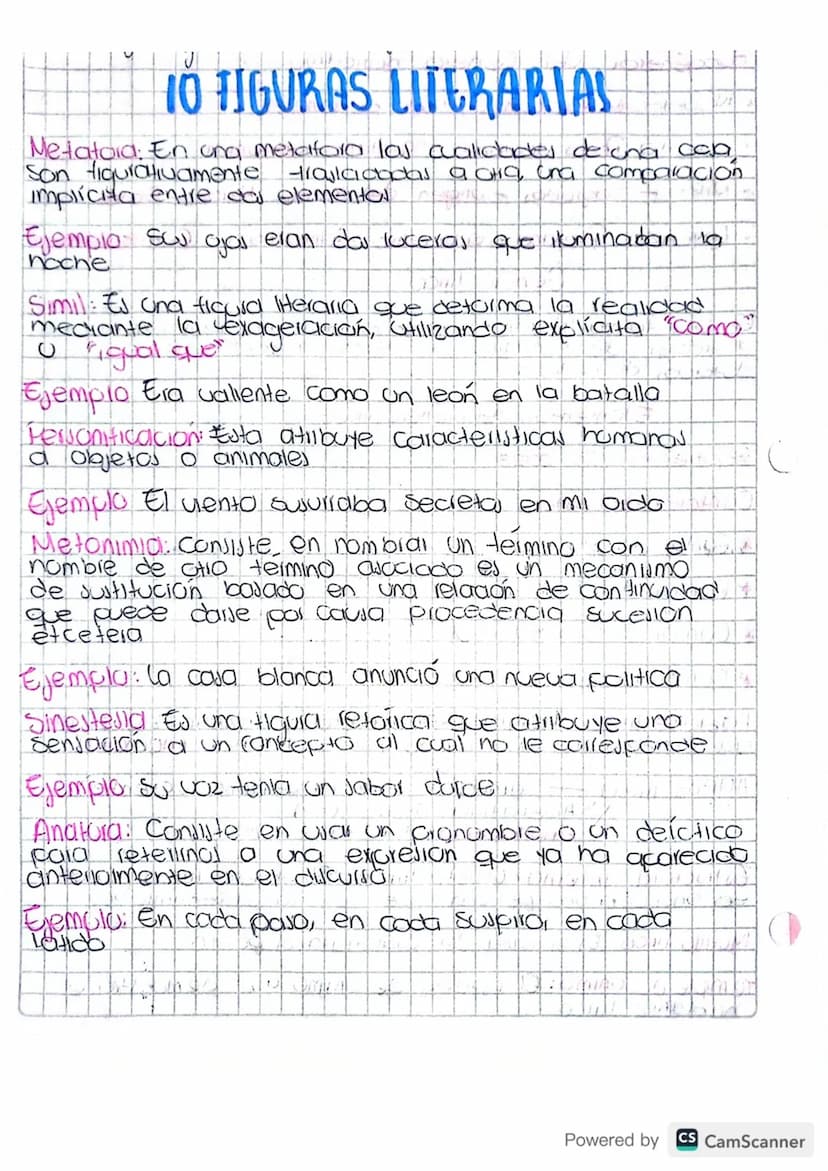 10 FIGURAS LITERARIAS
Metafora: En una metafora las cualidades de una cosa
son figurativamente trasladadas a otra, una comparación
implícita entre dos elementos
Ejemplo: Sus ojos eran dos luceros que iluminaban la
noche
Simil: Es una figura literaria que deforma la realidad
mediante la exageración, utilizando explícita "como"
U "igual que"
Ejemplo Era valiente como un león en la batalla
Personificación: Esta atribuye características humanas
a objetos o animales
Ejemplo El viento susurraba secretos en mi oido
Metonimia: Consiste en nombrar un término con el
nombre de otro término asociado es un mecanismo
de sustitución basado en una relación de continuidad
que puede darse por causa procedencia sucesion
etcetera
Ejemplo: La casa blanca anunció una nueva politica
Sinestesia Es una figura retorica que atribuye una
sensación a un concepto al cual no le corresponde
Ejemplo: Su voz tenia un sabor dulce
Anafora: Consiste en usar un pronombre o un deíctico
para referirnos a una expresion que ya ha aparecido
anteriormente en el discurso
Ejemplo: En cada paso, en cada suspiro, en cada
latido
Powered by CS CamScanner